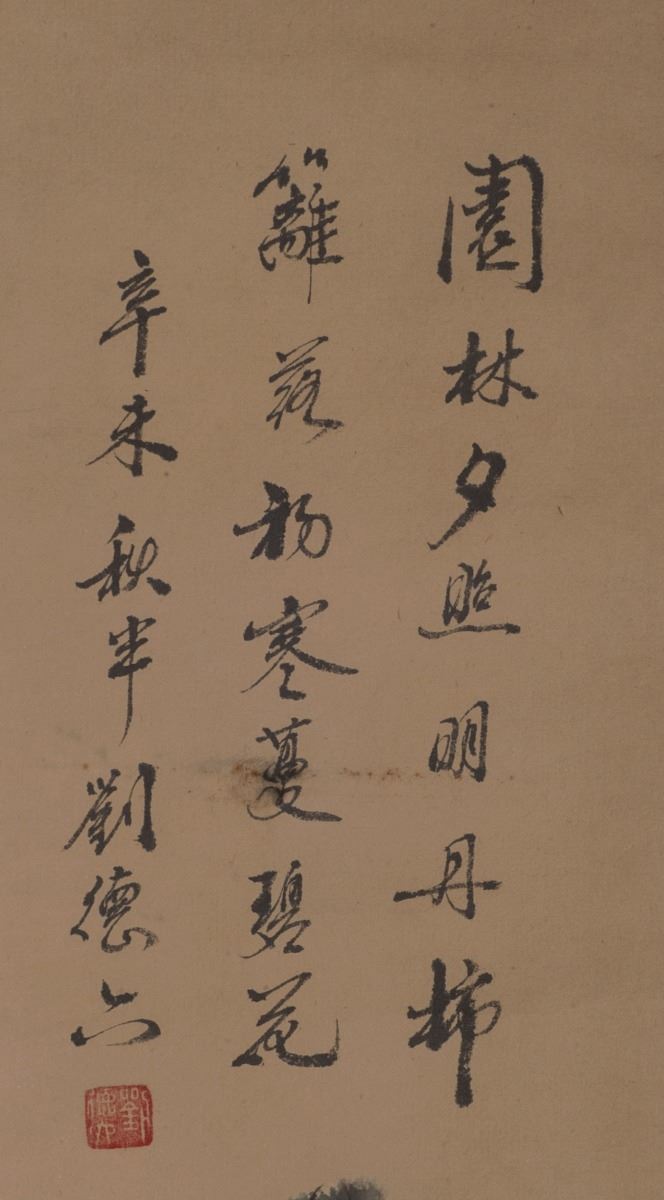 園林夕照明丹柿
籬落初寒蔓碧花
辛未秋半劉德六
劉德六